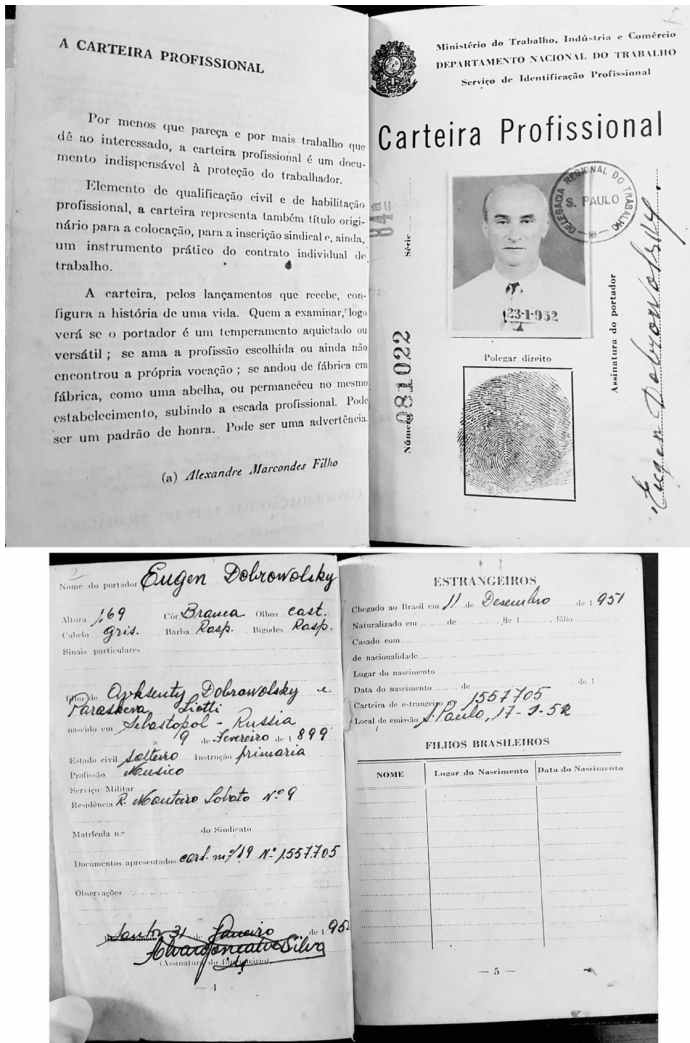 A CARTEIRA PROFISSIONAL
Por menos que pareça e por mais trabalho que
dê ao interessado, a carteira profissional é um docu-
mento indispensável à proteção do trabalhador.
Elemento de qualificação civil e de habilitação
profissional, a carteira representa também título origi-
nário para a colocação, para a inscrição sindical e, ainda,
um instrumento prático do contrato individual de
trabalho.
A carteira, pelos lançamentos que recebe, con-
figura a história de uma vida. Quem a examinar, logo
verá se o portador é um temperamento aquietado ou
versátil ; se ama a profissão escolhida ou ainda não
encontrou a própria vocação ; se andou de fábrica em
fábrica, como uma abelha, ou permaneceu no mesmo
estabelecimento, subindo a escada profissional. Pode
ser um padrão de honra. Pode ser uma advertência.
(a) Alexandre Marcondes Filho
Ministério do Trabalho, Indústria e Comércio
DEPARTAMENTO NACIONAL DO TRABALHO
Serviço de Identificação Profissional
Carteira Profissional
Número 081022 Série 84a
DELEGACIA REGIONAL DO TRABALHO
S. PAULO
23-1-952
Polegar direito
Assinatura do portador
Eugen Dobrowolsky
Nome do portador Eugen Dobrowolsky
Altura 1,69 Côr Branca Olhos cast.
Cabelo gris. Barba Rasp. Bigodes Rasp.
Sinais particulares
Filho de Arksenty Dobrowolsky e
Paraskeva Liotti
nascido em Sebastopol - Russia
a 9 de Fevereiro de 1 899
Estado civil solteiro Instrução primaria
Profissão Musico
Serviço Militar
Residência R. Monteiro Lobato Nº 9
Matrícula n.º do Sindicato
Documentos apresentados card. mº 19 Nº 1,557.705
Observações
Santos 31 de Janeiro de 1 952
Alvaro Gonçalves Silva
— 4
ESTRANGEIROS
Chegado ao Brasil em 11 de Desembro de 1 951
Naturalizado em de de 1 fólio
Casado com
de nacionalidade
Lugar do nascimento
Data do nascimento de de 1
Carteira de estrangeiro 1557705
Local de emissão S. Paulo, 17-1-52
FILHOS BRASILEIROS
NOME Lugar do Nascimento Data do Nascimento
— 5 —